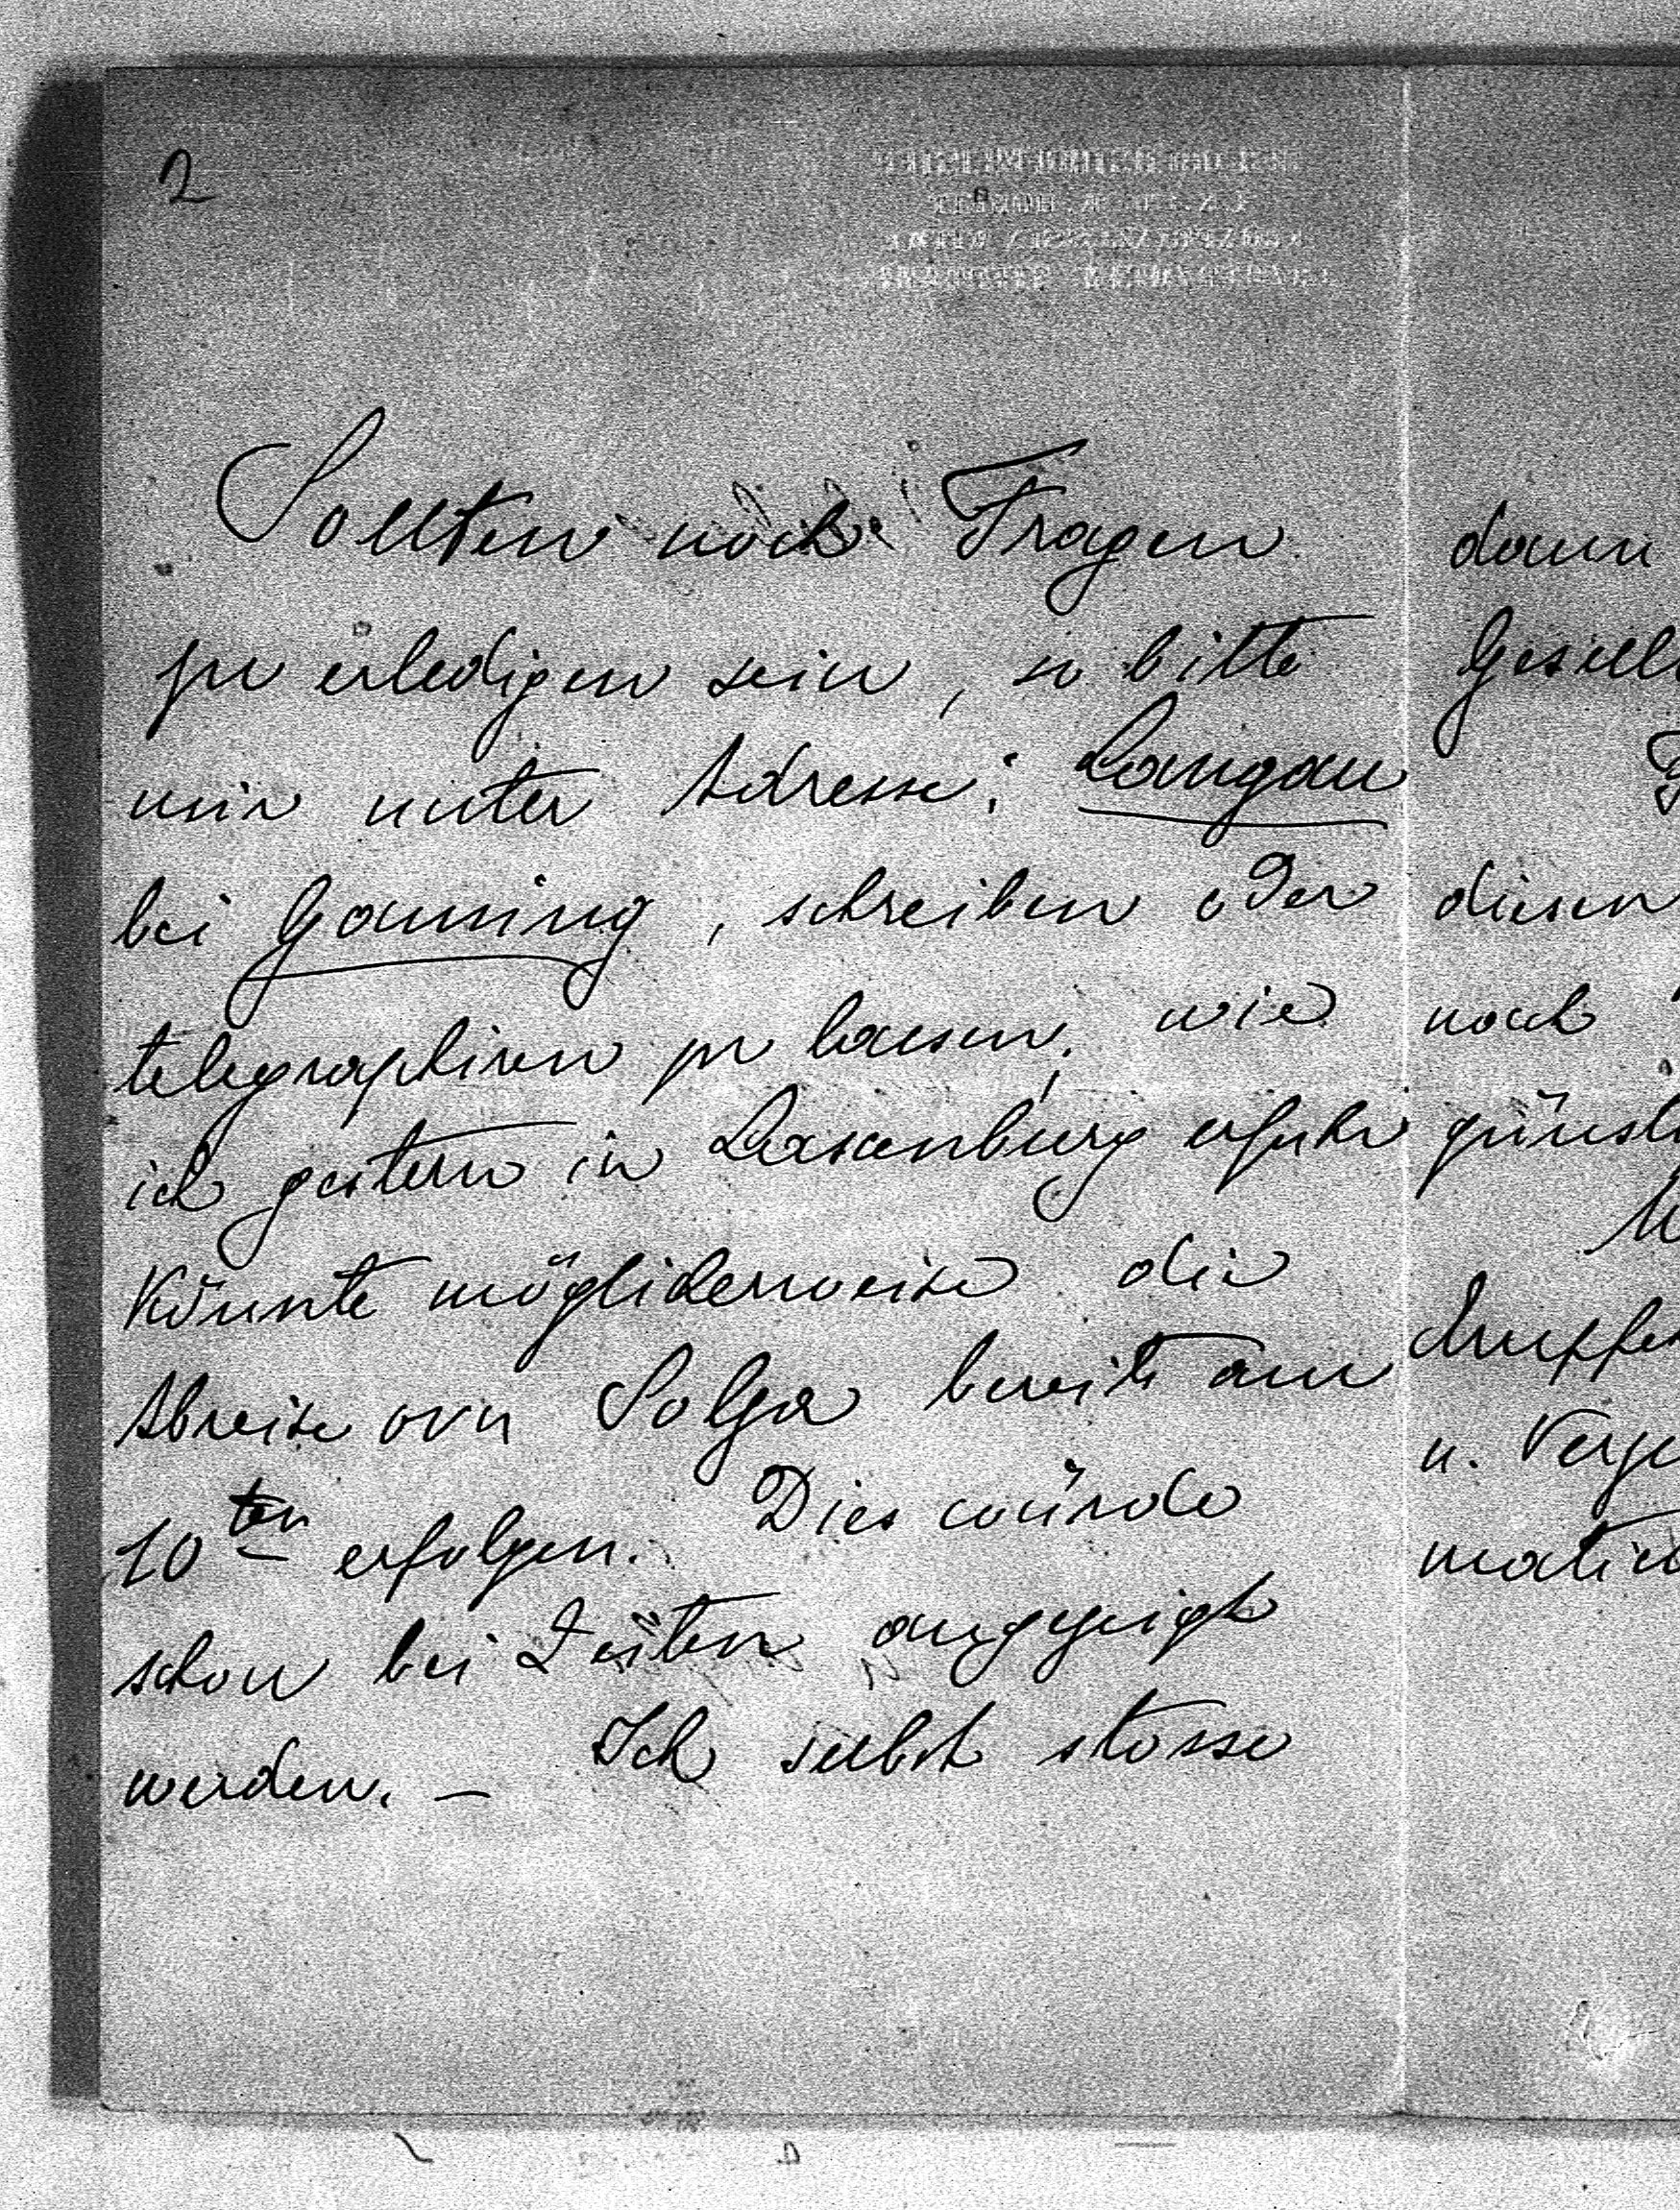 2
Sollten noch Fragen
zu erledigen sein, so bitte
mir unter Adresse: Langau
bei Gaming, schreiben oder
telegraphiren zu lassen, wie
ich gestern in Laxenburg erfuhr
könnte möglicherweise die
Abreise von Solga bereits am
10ten erfolgen. Dies würde
schon bei Zeiten angezeigt
werden. – Ich selbst stosse
dann
Gesell
diesen
noch
günsti
u. Verge